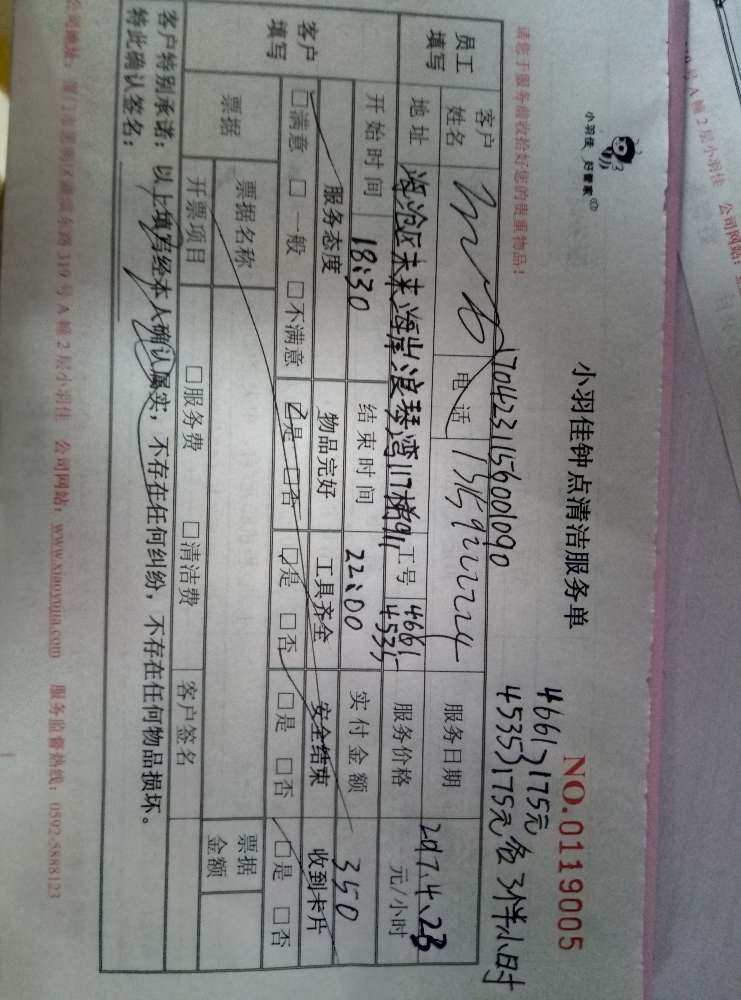 小羽佳 好管家
请您于服务前收拾好您的贵重物品！
小羽佳钟点清洁服务单
NO.0119005
4661 175元
4535 175元 各3个半小时
1704231156001090
员工填写
客户姓名
电话
服务日期 2017.4.23
地址 海沧区未来海岸浪琴湾117梯911
工号 4661 4535
服务价格 元/小时
开始时间 18:30
结束时间 22:00
实付金额 350
客户填写
服务态度 物品完好 工具齐全 安全结束 收到卡片
□满意 □一般 □不满意 □是 □否 □是 □否 □是 □否 □是 □否
票据 票据名称 票据金额
开票项目 □服务费 □清洁费 客户签名
客户特别承诺：以上填写经本人确认属实，不存在任何纠纷，不存在任何物品损坏。
特此确认签名：
319号A幢2层小羽佳 公司网站：www.xiaoyujia.com 服务监督热线：0592-5888123
号A幢2层小羽佳 公司网站：